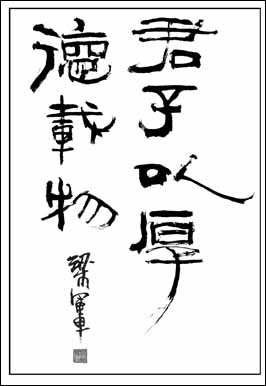 君子以厚
德載物
梁軍